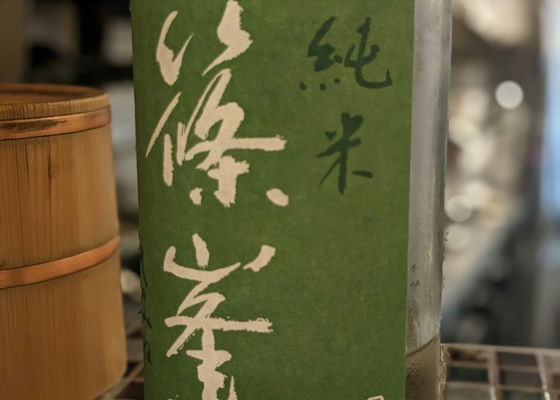 純米
篠峯